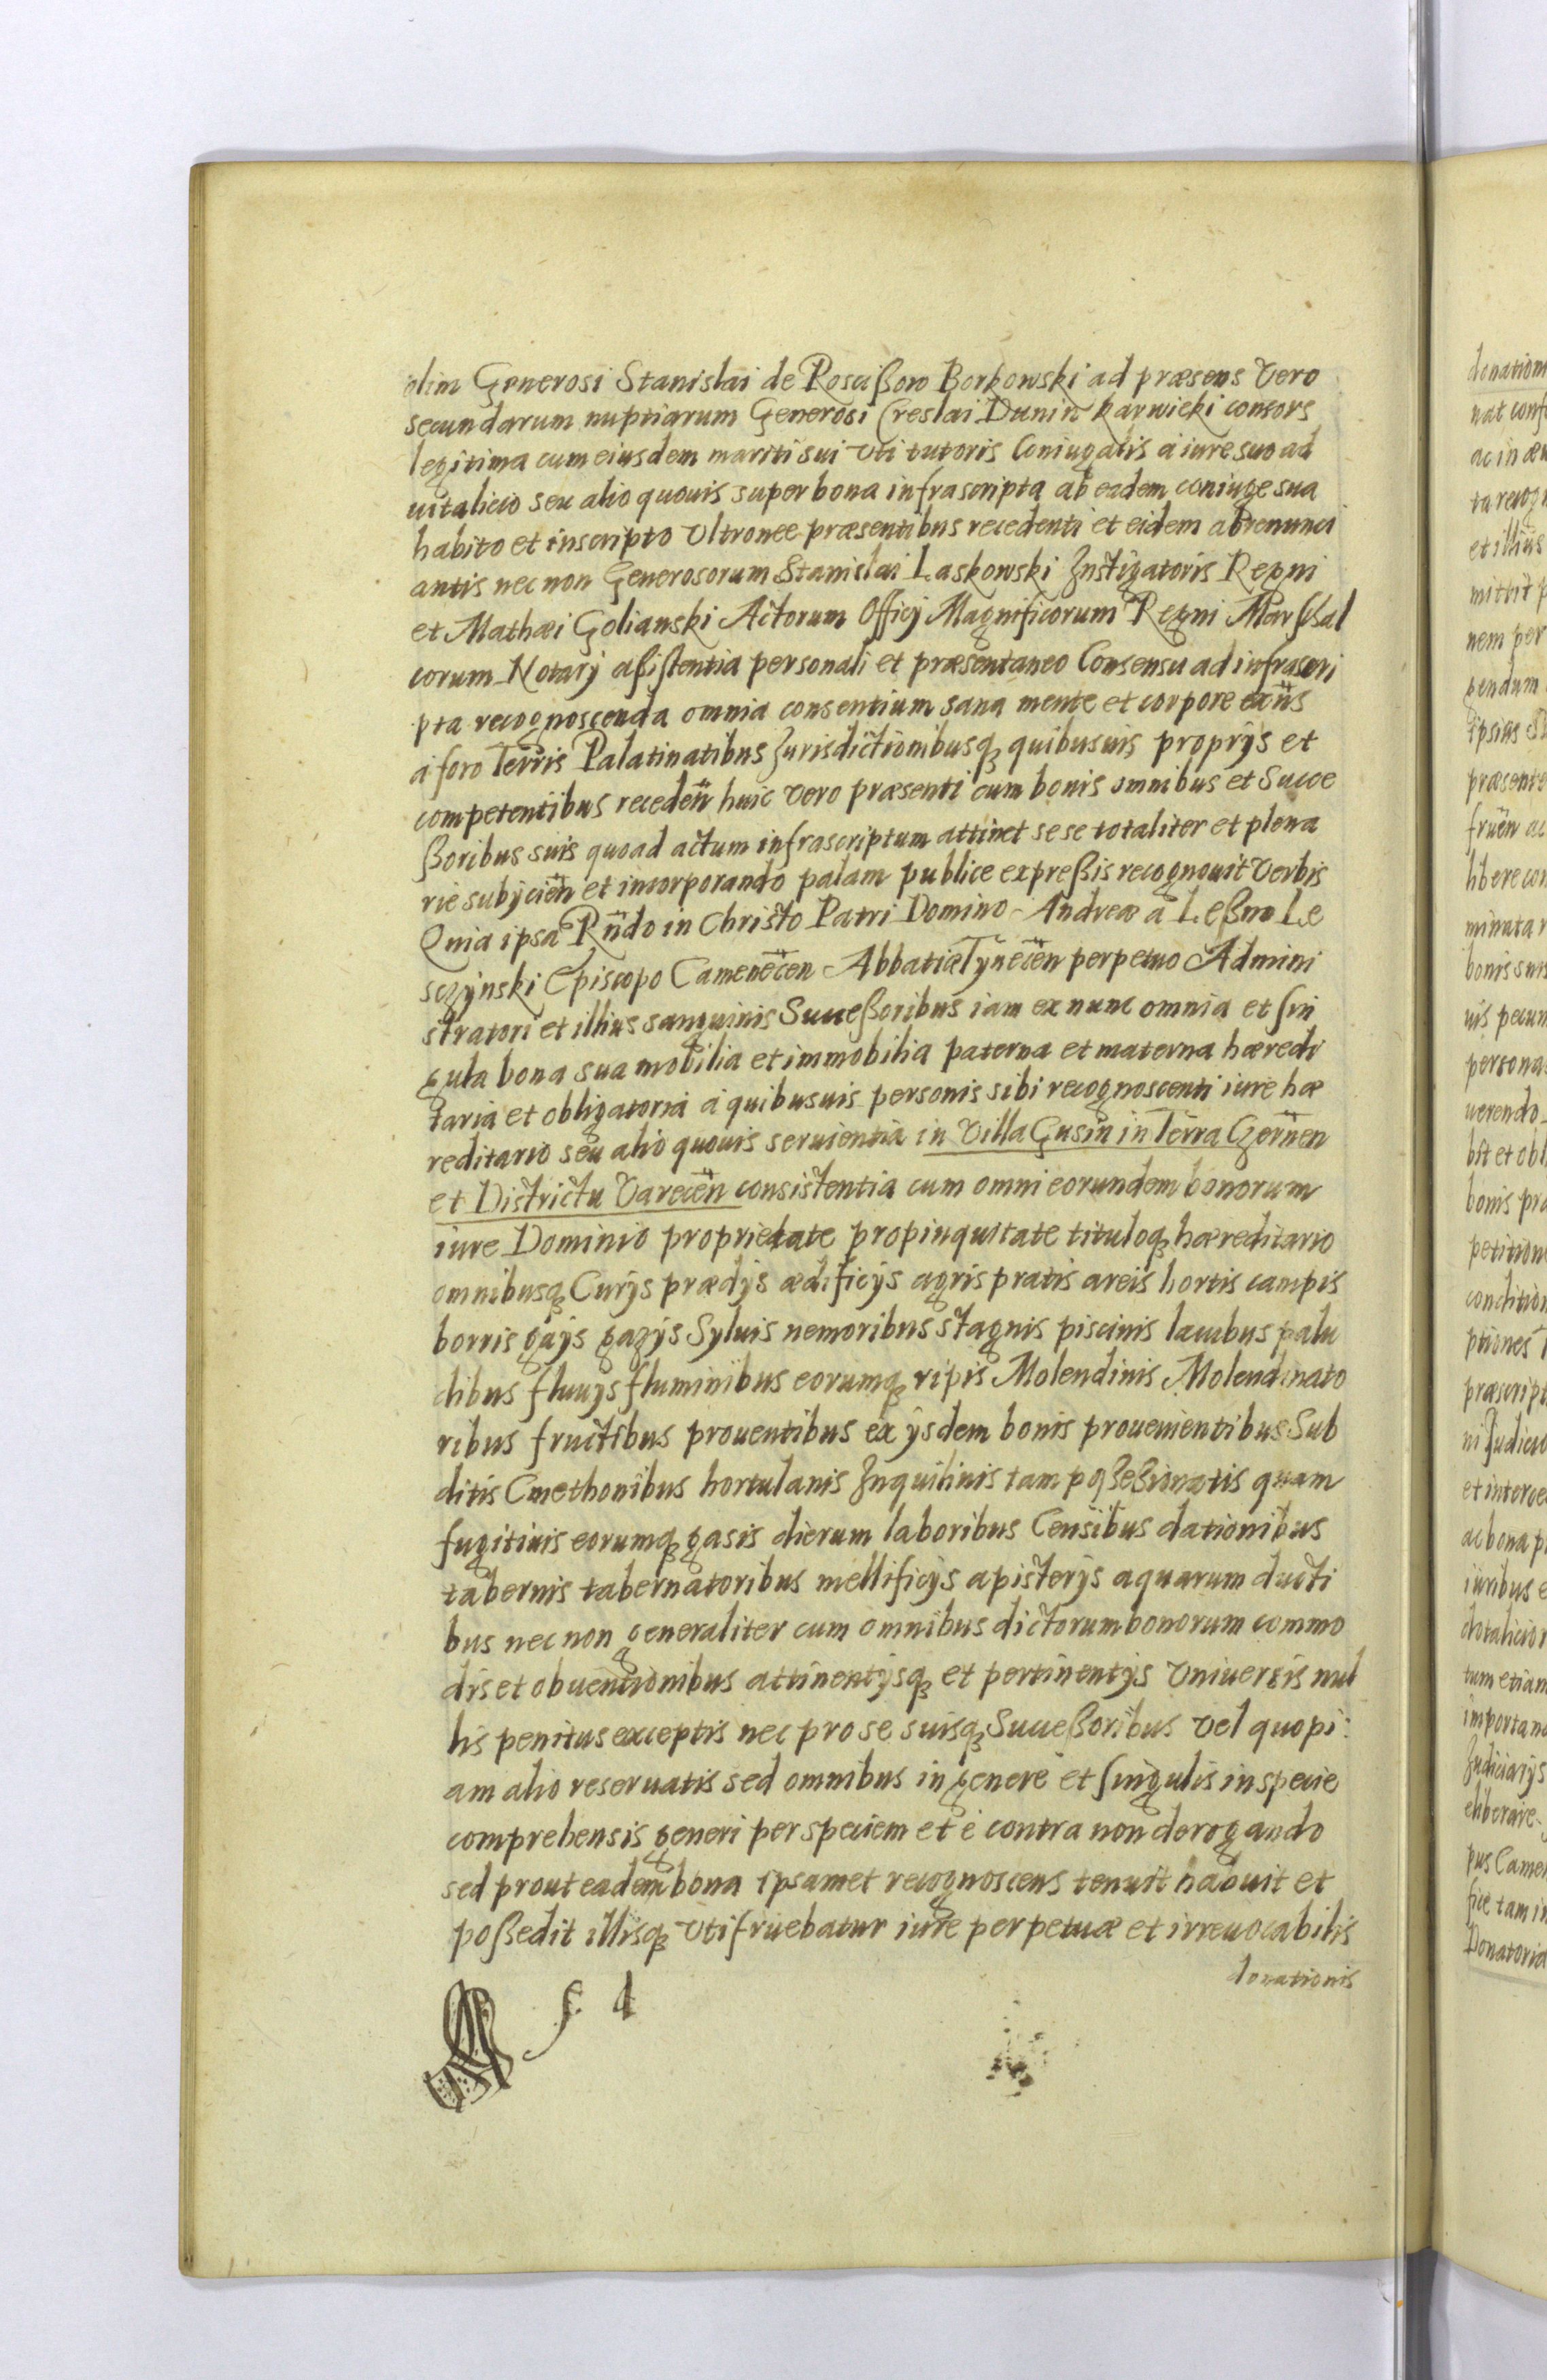 olim Generosi Stanislai de Roscißow Borkowski ad præsens vero
secundarum nuptiarum Generosi Creslai Dunin Karwicki consors
legitima cum eiusdem mariti sui vti tutoris Coniugalis a iure suo ad
uitalicio seu alio quouis super bona infrascripta ab eadem coniuge sua
habito et inscripto vltronee præsentibus recedenti et eidem abrenunci
antis nec non Generosorum Stanislai Laskowski Instigatoris Regni
et Mathæi Golianski Actorum Officij Magnificorum Regni Marschal
corum Notarij aßistentia personali et præsentaneo Consensu ad infrascri
pta recognoscenda omnia consentium sana mente et corpore exñs
a foro Terris Palatinatibus Jurisdictionibusq quibusuis proprijs et
competentibus recedeñ huic vero præsenti cum bonis omnibus et Succe
ßoribus suis quoad actum infrascriptum attinet sese totaliter et plena
rie subijcieñ et incorporando palam publice expreßis recognouit verbis
Quia ipsa Rñdo in Christo Patri Domino Andreæ a Leßno Le
sczynski Episcopo Cameneceñ Abbatiæ Tyneceñ perpetuo Admini
stratori et illius sanguinis Succeßoribus iam ex nunc omnia et sin
gula bona sua mobilia et immobilia paterna et materna hæredi
taria et obligatoria a quibusuis personis sibi recognoscenti iure hæ
reditario seu alio quouis seruientia in Villa Gusin in Terra Czerñen
et Districtu Vareceñ consistentia cum omni eorundem bonorum
iure Dominio proprietate propinquitate tituloq hæreditario
omnibusq Curijs prædijs ædificijs agris pratis areis hortis campis
borris gajs gazijs Syluis nemoribus stagnis piscinis lacubus palu
dibus fluuijs fluminibus eorumq ripis Molendinis Molendinato
ribus fructibus prouentibus ex ijsdem bonis prouenientibus Sub
ditis Cmethonibus hortulanis Inquilinis tam poßeßionatis quam
fugitiuis eorumq gasis dierum laboribus Censibus dationibus
tabernis tabernatoribus mellificijs apisterijs aquarum ducti
bus nec non generaliter cum omnibus dictorum bonorum commo
dis et obuentionibus attinentijsq et pertinentijs vniuersis nul
lis penitus exceptis nec pro se suisq Succeßoribus vel quopi:
am alio reseruatis sed omnibus in genere et singulis in specie
comprehensis generi per speciem et e contra non derogando
sed prout eadem bona ipsamet recognoscens tenuit habuit et
poßedit illisq vtifruebatur iure perpetuæ et irreuocabilis
donationis
donation
nat conf
ac in æu
ta recogn
et illius
mittit p
nem per
pendum
ipsius
præsente
fruen ac
libere con
minuta
bonis suis
uis pecun
persona
uerendo
bit et obl
bonis pra
petition
condition
ptiones
præscript
ni Judicio
et interce
ac bona p
iuribus e
dotalicior
tum etiam
importan
Judiciarijs
eliberare
pus Camen
fice tam in
Donatoria